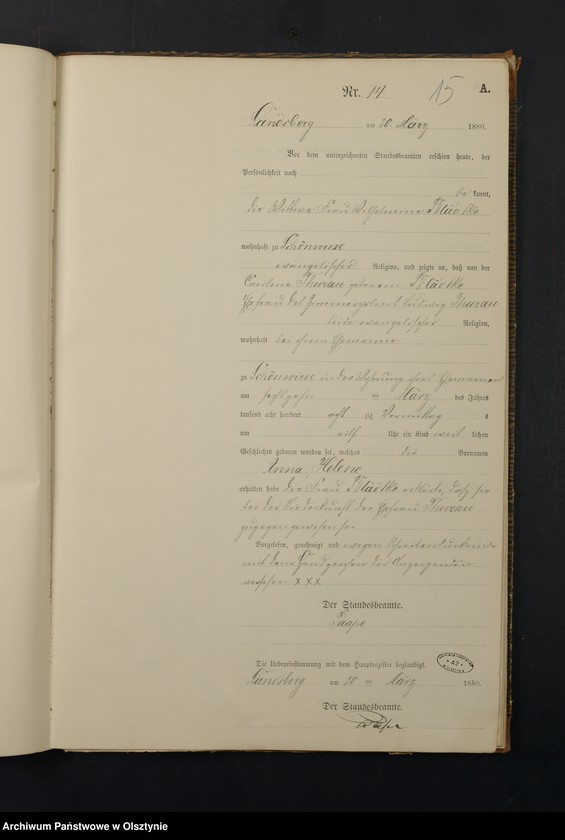 Nr. 14 15 A.
Landsberg am 20. März 1880.
Vor dem unterzeichneten Standesbeamten erschien heute, der
Persönlichkeit nach
be kannt,
die Wittwe Frau Wilhelmine Bladtke
wohnhaft zu Schönwiese
evangelischer Religion, und zeigte an, daß von der
Caroline Thurau geborene Bladtke
Ehefrau des Ludwig Thurau
beide evangelischer Religion,
wohnhaft bei ihrem Ehemanne
zu Schönwiese in der Wohnung ihres Ehemannes
am sechszehn ten März des Jahres
tausend acht hundert acht zig Vormittag s
um eilf Uhr ein Kind weib lichen
Geschlechts geboren worden sei, welches die Vornamen
Anna Helene
erhalten habe die Frau Bladtke erklärte, daß sie
bei der Niederkunft der Ehefrau Thurau
zugegen gewesen sei
Vorgelesen, genehmigt und wegen Schreibensunkunde
mit dem Handzeichen der Anzeigenden
versehen XXX
Der Standesbeamte.
Paape
Die Uebereinstimmung mit dem Hauptregister beglaubigt.
Landsberg am 20 ten März 1880.
Der Standesbeamte.
42
Archiwum Państwowe w Olsztynie